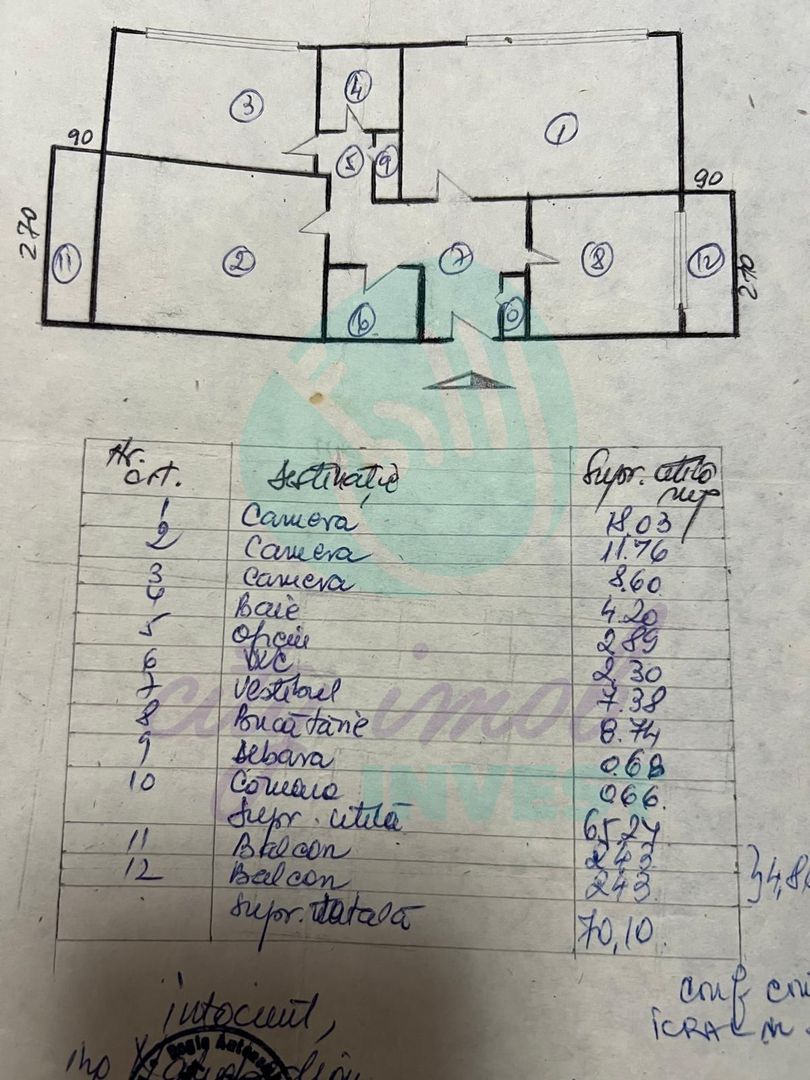 3 4 1
5 9
90
90
270 11 2 7 8 12 270
6 10
Nr. crt. Destinație Supr. utilă mp
1 Camera 18.03
2 Camera 11.76
3 Camera 8.60
4 Baie 4.20
5 Oficiu 2.89
6 WC 2.30
7 Vestibul 7.38
8 Bucătărie 8.74
9 Debara 0.68
10 Cămara 0.66.
Supr. utilă 65,24
11 Balcon 2.43
12 Balcon 2.43 } 4,86
Supr. totală 70,10
city imobil
INVEST
conf
întocmit,
ICRAL
Regia Autonomă